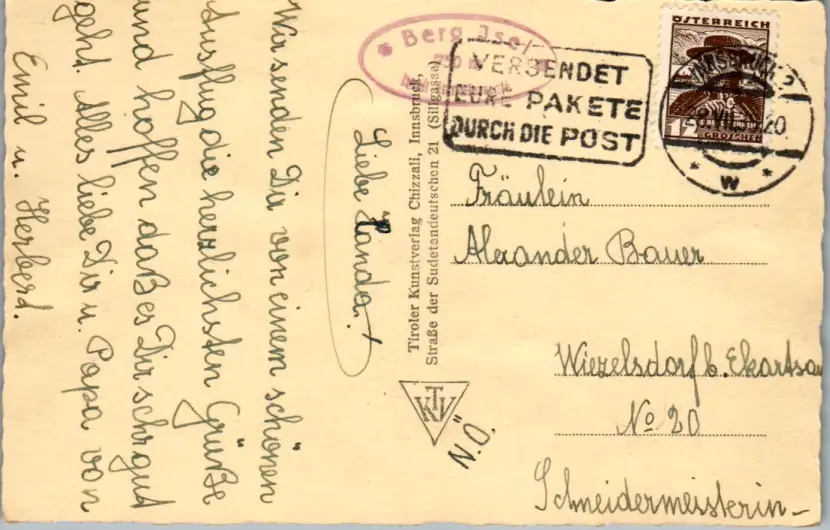 Liebe Handa!
Wir senden Dir von einem schönen
Ausflug die herzlichsten Grüße
und hoffen daß es Dir sehr gut
geht. Alles liebe Dir u. Papa von
Emil u. Herbert.
Tiroler Kunstverlag Chizzali, Innsbruck,
Straße der Sudetendeutschen 21 (Sillgasse)
KTV
Berg Isel
VERSENDET
EURE PAKETE
DURCH DIE POST
ÖSTERREICH
GROSCHEN
INNSBRUCK 2
VII
20
* W *
Fräulein
Alexander Bauer
Wiezelsdorf b. Ekartsau
No 20
N.Ö.
Schneidermeisterin